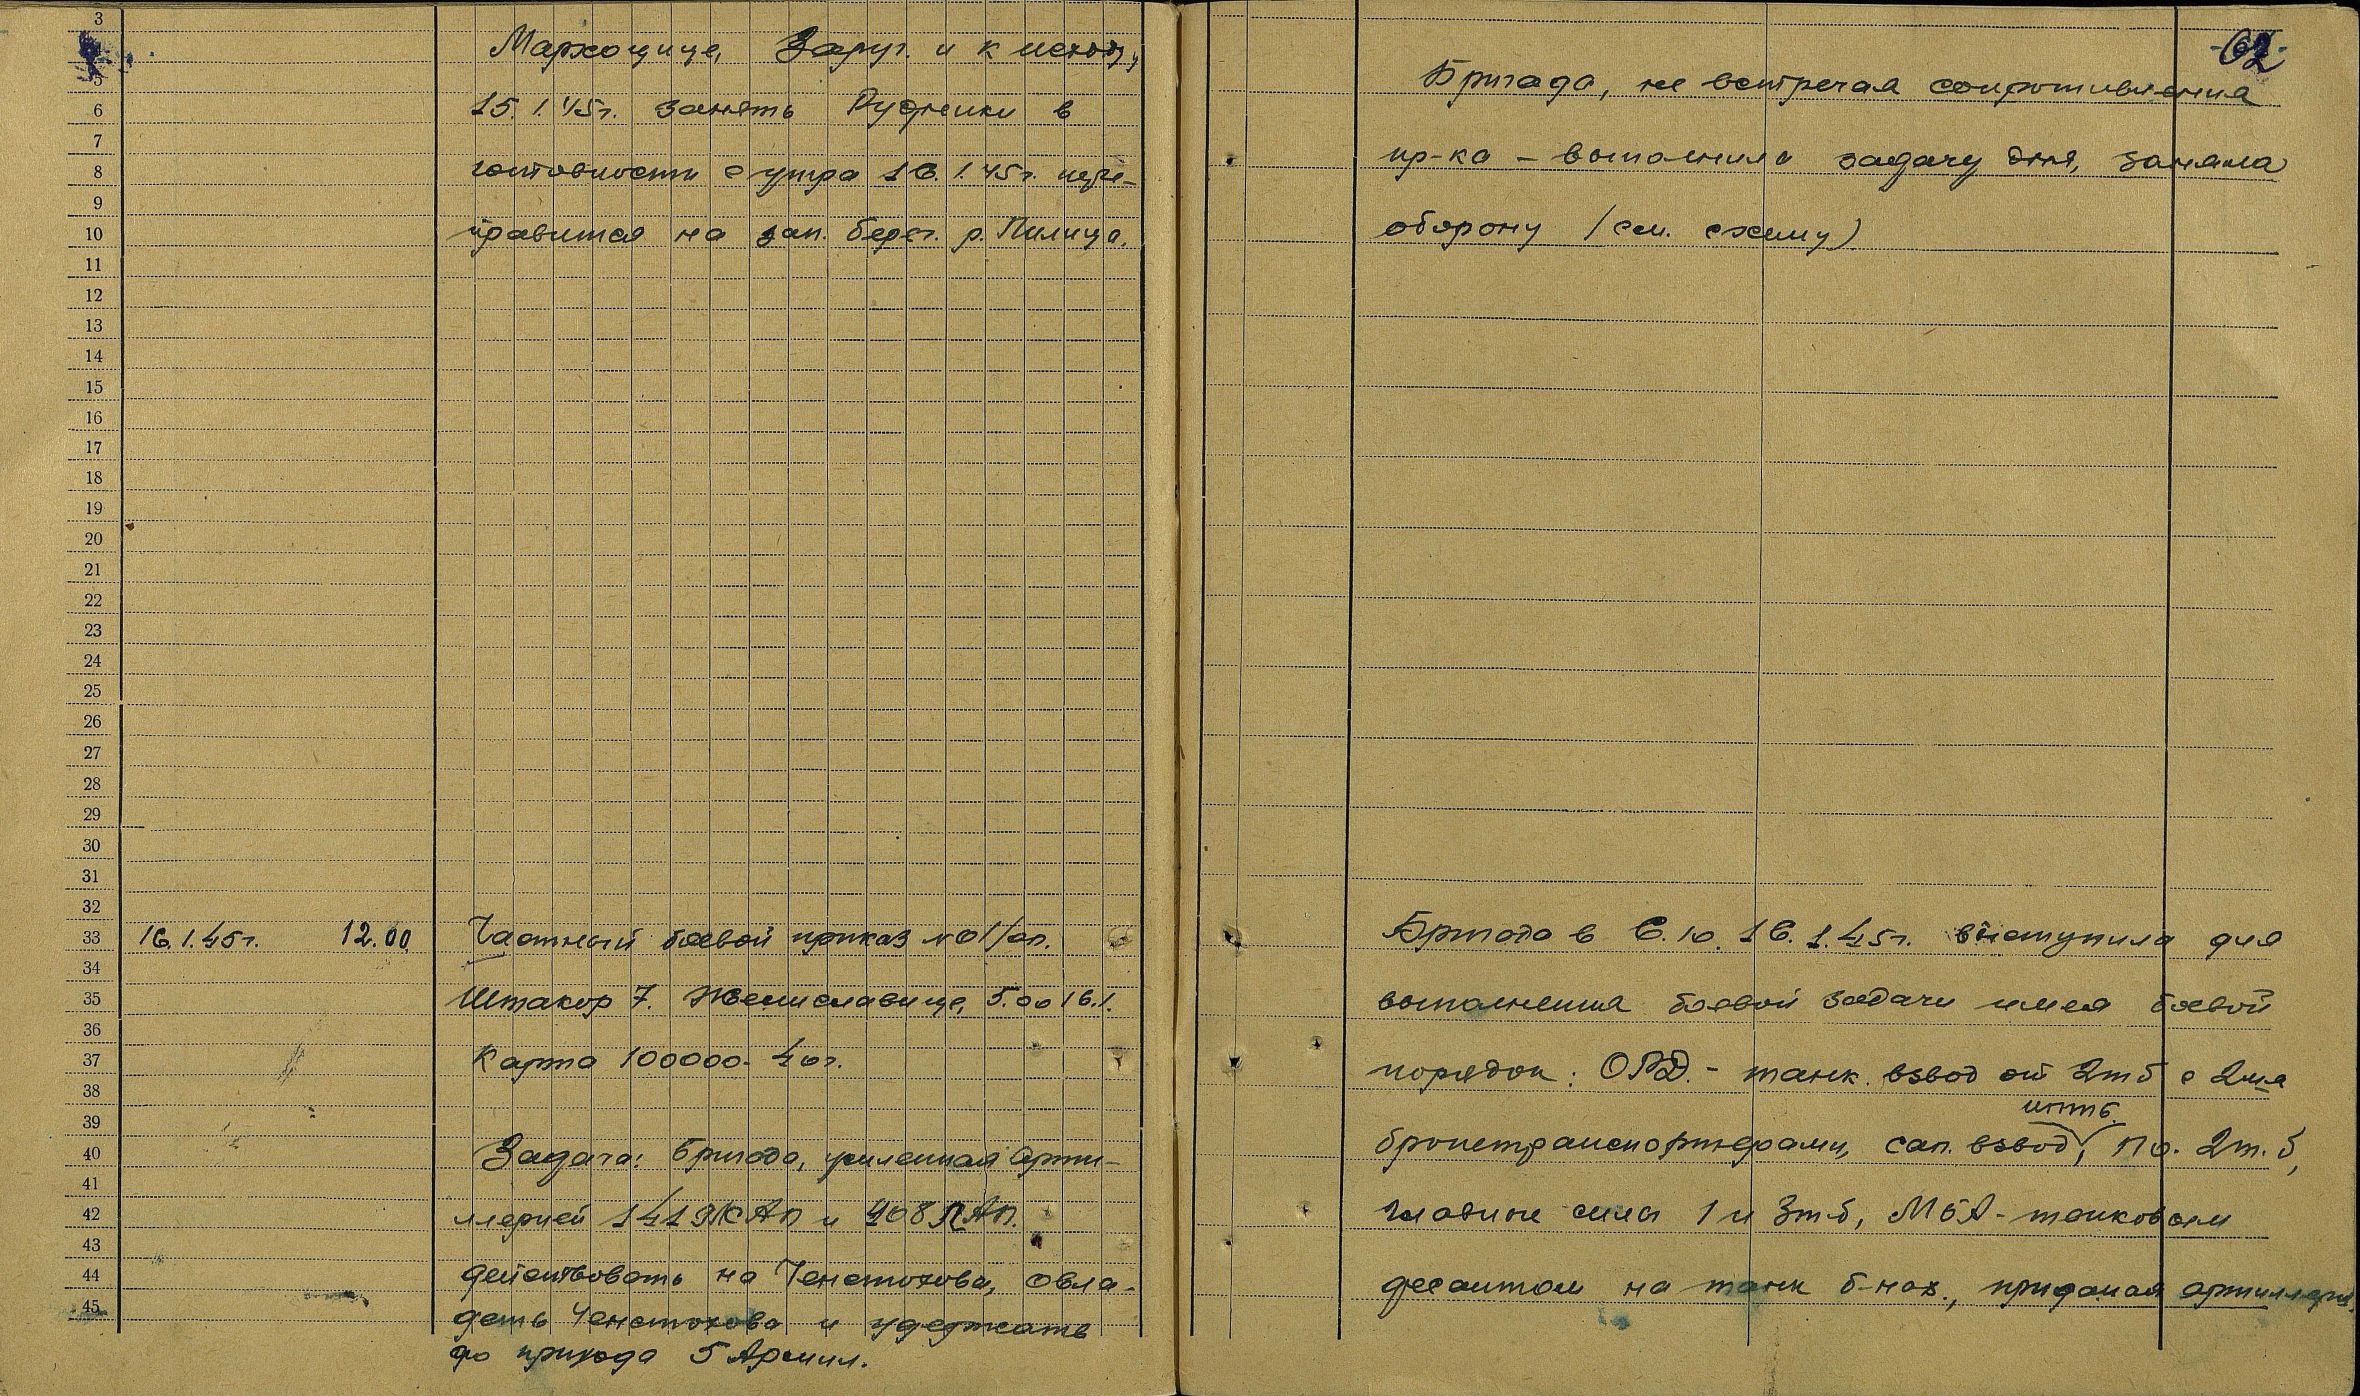 3
5
6
7
8
9
10
11
12
13
14
15
16
17
18
19
20
21
22
23
24
25
26
27
28
29
30
31
32
33
34
35
36
37
38
39
40
41
42
43
44
45
Мархоцице, Заруг. и к исходу
15.1.45г. занять Рудники в
готовности с утра 16.1.45г. пере-
правится на зап. берег. р. Пилица.
16.1.45г. 12.00
Частный боевой приказ №01/оп.
Штакор 7. Жемиславице, 5.00 16.1.
Карта 100000- 40г.
Задача: Бригада, усиленная арти-
лерией 1419КАП и 408ПАП.
действовать на Ченстохова, овла-
деть Ченстохова и удержать
до прихода 5 Армии.
-62-
Бригада, не встречая сопротивления
пр-ка - выполнила задачу дня, заняла
оборону /см. схему)
Бригада в 6.10. 16.1.45г. выступила для
выполнения боевой задачи имея боевой
порядок: ОРД. - танк. взвод от 2тб с 2мя
иптб
бронетранспортерами, сап. взвод, ПО. 2т.б,
главные силы 1 и 3тб, МБА - танковым
десантом на танк б-нах., приданая артиллерия